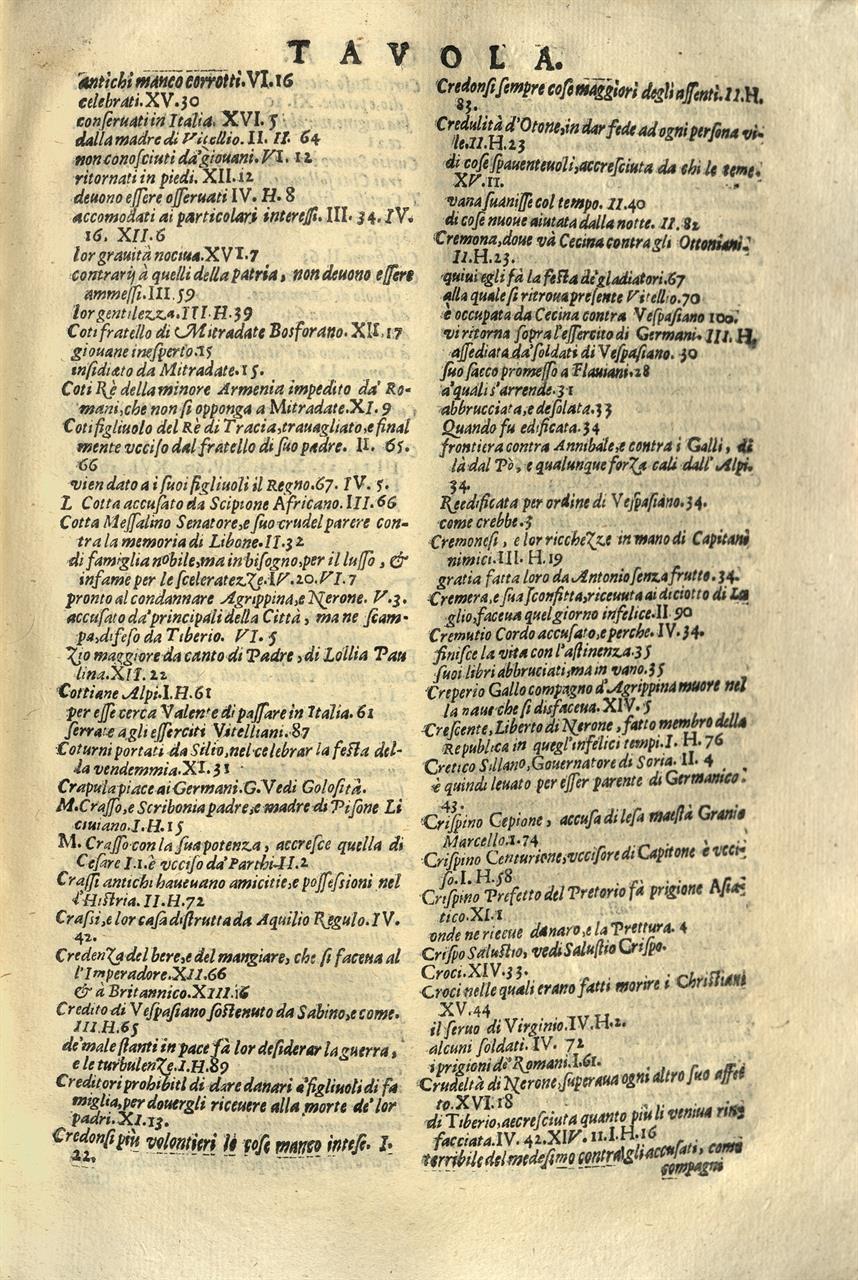 TAVOLA.
antichi manco corrotti. VI. 16
celebrati. XV. 30
conſeruati in Italia. XVI. 5
dalla madre di Vitellio. II. II. 64
non conoſciuti da'giouani. VI. 12
ritornati in piedi. XII. 12
deuono eſſere oſſeruati IV. H. 8
accomodati ai particolari intereſſi. III. 34. IV.
16. XII. 6
lor grauità nociua. XVI. 7
contrarij à quelli della patria, non deuono eſſere
ammeſſi. III. 59
lor gentilezza. III. H. 39
Coti fratello di Mitradate Bosforano. XII. 17
giouane ineſperto. 15
inſidiato da Mitradate. 15.
Coti Rè della minore Armenia impedito da' Ro-
mani, che non ſi opponga a Mitradate. XI. 9
Coti figliuolo del Rè di Tracia, trauagliato, e final
mente vcciſo dal fratello di ſuo padre. II. 65.
66
vien dato a i ſuoi figliuoli il Regno. 67. IV. 5.
L Cotta accuſato da Scipione Africano. III. 66
Cotta Meſſalino Senatore, e ſuo crudel parere con-
tra la memoria di Libone. II. 32
di famiglia nobile, ma in biſogno, per il luſſo, &
infame per le ſceleratezze. IV. 20. VI. 7
pronto al condannare Agrippina, e Nerone. V. 3.
accuſato da'principali della Città, ma ne ſcam-
pa, difeſo da Tiberio. VI. 5
Zio maggiore da canto di Padre, di Lollia Pau
lina. XII. 22
Cottiane Alpi. I. H. 61
per eſſe cerca Valente di paſſare in Italia. 61
ſerrate agli eſſerciti Vitelliani. 87
Coturni portati da Silio, nel celebrar la feſta del-
la vendemmia. XI. 31
Crapula piace ai Germani. G. Vedi Goloſità.
M. Craſſo, e Scribonia padre, e madre di Piſone Li
ciuiano. I. H. 15
M. Craſſo con la ſua potenza, accreſce quella di
Ceſare I. 1. è vcciſo da' Parthi. II. 2
Craſſi antichi haueuano amicitie, e poſſeſſioni nel
l'Hiſtria. II. H. 72
Craſſi, e lor caſa diſtrutta da Aquilio Regulo. IV.
42.
Credenza del bere, e del mangiare, che ſi faceua al
l'Imperadore. XII. 66
& à Britannico. XIII. 16
Credito di Veſpaſiano ſoſtenuto da Sabino, e come.
III. H. 65
de'male ſtanti in pace fà lor deſiderar la guerra,
e le turbulenze. I. H. 89
Creditori prohibiti di dare danari a'figliuoli di fa
miglia, per douergli riceuere alla morte de' lor
padri. XI. 13.
Credonſi più volontieri le coſe manco inteſe. I.
22.
Credonſi ſempre coſe maggiori degli aſſenti. II. H.
83.
Credulità d'Otone, in dar fede ad ogni perſona vi-
le. II. H. 23
di coſe ſpauenteuoli, accreſciuta da chi le teme.
XV. 11.
vana ſuaniſſe col tempo. II. 40
di coſe nuoue aiutata dalla notte. II. 82
Cremona, doue và Cecina contra gli Ottoniani.
II. H. 23.
quiui egli fà la feſta de'gladiatori. 67
alla quale ſi ritroua preſente Vitellio. 70
è occupata da Cecina contra Veſpaſiano 100.
vi ritorna ſopra l'eſſercito di Germani. III. H.
aſſediata da'ſoldati di Veſpaſiano. 30
ſuo ſacco promeſſo a Flauiani. 28
a'quali s'arrende. 31
abbrucciata, e deſolata. 33
Quando fu edificata. 34
frontiera contra Annibale, e contra i Galli, di
là dal Pò, e qualunque forza cali dall'Alpi.
34.
Reedificata per ordine di Veſpaſiano. 34.
come crebbe. 3
Cremoneſi, e lor ricchezze in mano di Capitani
nimici. III. H. 19
gratia fatta loro da Antonio ſenza frutto. 34.
Cremera, e ſua ſconfitta, riceuuta ai diciotto di Lu
glio, faceua quel giorno infelice. II 90
Cremutio Cordo accuſato, e perche. IV. 34.
finiſce la vita con l'aſtinenza. 35
ſuoi libri abbruciati, ma in vano. 35
Creperio Gallo compagno d'Agrippina muore nel
la naue che ſi disfaceua. XIV. 5
Creſcente, Liberto di Nerone, fatto membro della
Republica in quegl'infelici tempi. I. H. 76
Cretico Sillano, Gouernatore di Soria. II. 4
è quindi leuato per eſſer parente di Germanico.
43.
Criſpino Cepione, accuſa di leſa maeſtà Granio
Marcello. 1. 74
Criſpino Centurione, vcciſore di Capitone è vcci-
ſo. I. H. 58
Criſpino Prefetto del Pretorio fà prigione Aſia-
tico. XI. 1
onde ne rieeue danaro, e la Prettura. 4
Criſpo Saluſtio, vedi Saluſtio Criſpo.
Croci. XIV. 33.
Croci nelle quali erano fatti morire i Chriſtiani
XV. 44
il ſeruo di Virginio. IV. H. 2.
alcuni ſoldati. IV. 72
i prigioni de' Romani. I. 61.
Crudeltà di Nerone, ſuperaua ogni altro ſuo affet
to. XVI. 18
di Tiberio, aecreſciuta quanto più li veniua rinſ
facciata. IV. 42. XIV. 11. I. H. 16
terribile del medeſimo contra gli accuſati, come
compagni